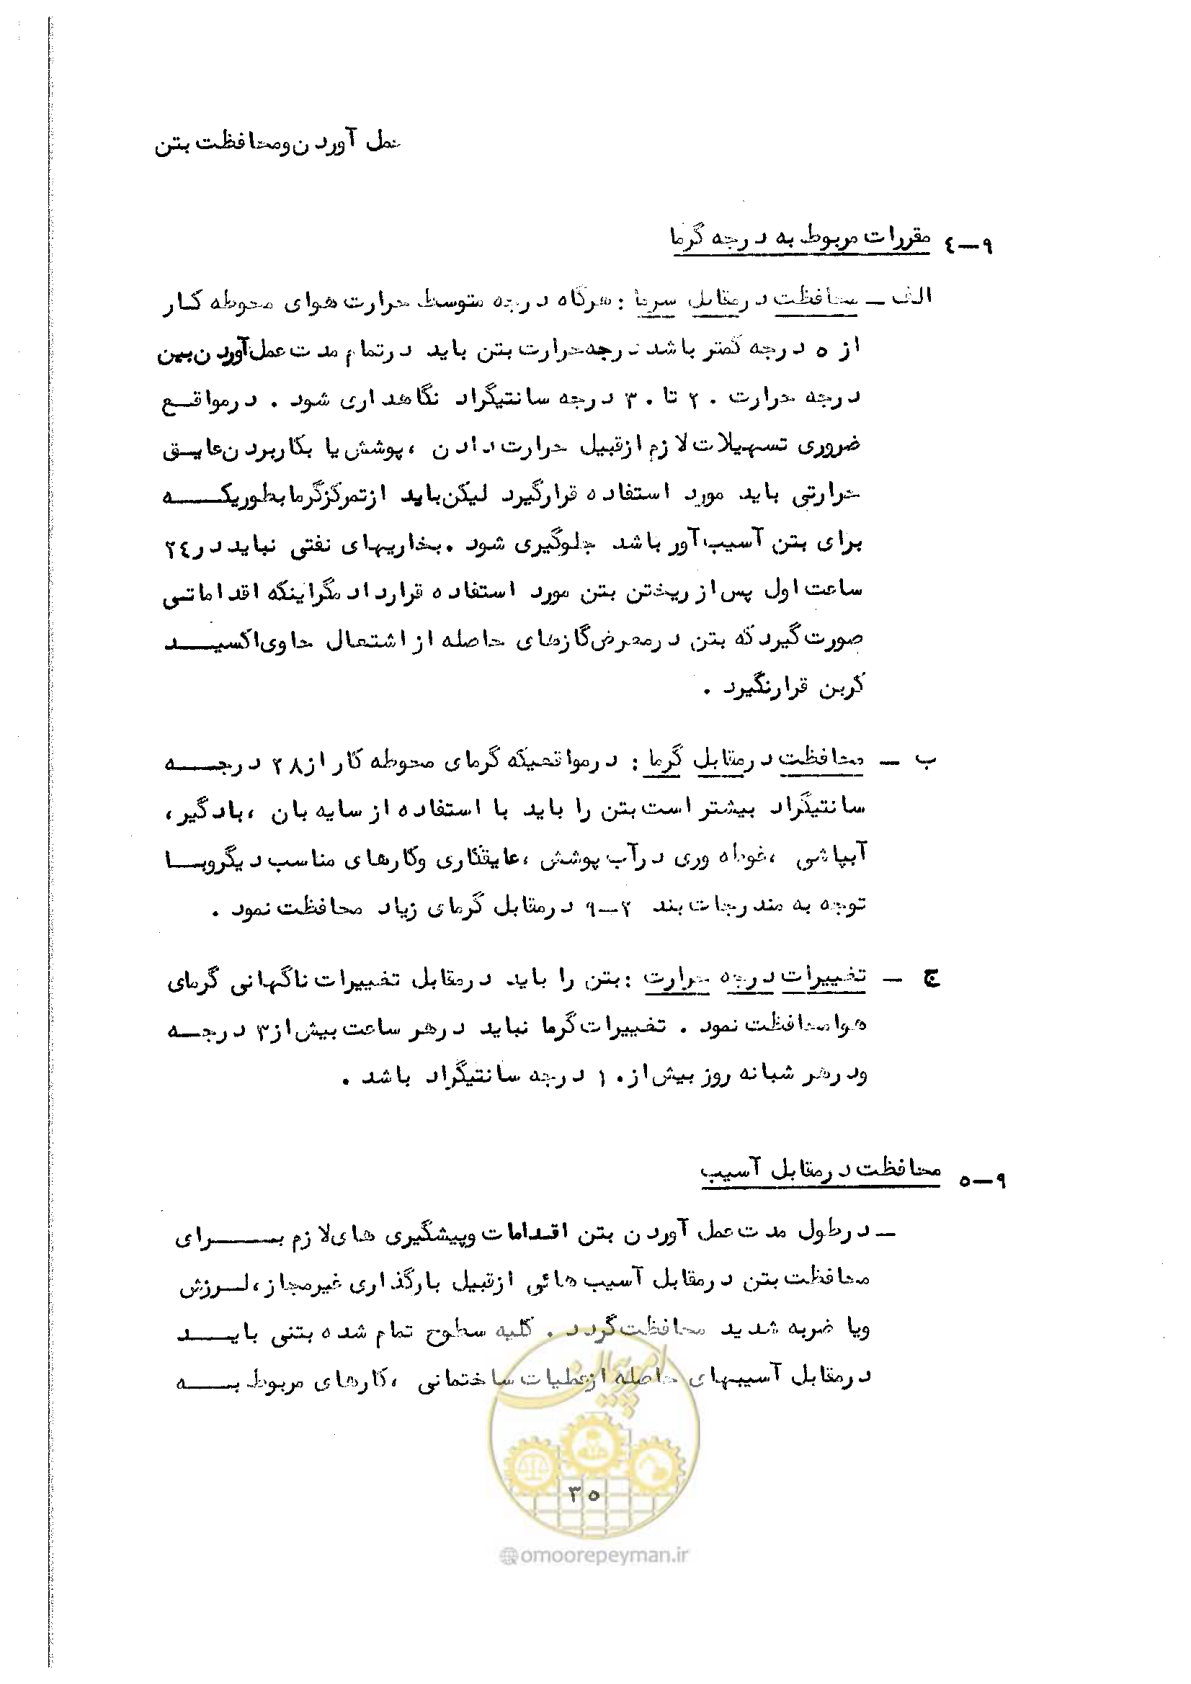 عمل آوردن و محافظت بتن
۹ــ٤ مقررات مربوط به درجه گرما
الف ــ محافظت درمقابل سرما : هرگاه درجه متوسط حرارت هوای محوطه کار
از ۵ درجه کمتر باشد درجه حرارت بتن باید درتمام مدت عمل آوردن بین
درجه حرارت ۲۰ تا ۳۰ درجه سانتیگراد نگاهداری شود . درمواقع
ضروری تسهیلات لازم ازقبیل حرارت دادن ، پوشش یا بکاربردن عایق
حرارتی باید مورد استفاده قرارگیرد لیکن باید ازتمرکز گرما بطوریکه
برای بتن آسیب آور باشد جلوگیری شود . بخاریهای نفتی نباید در ۲٤
ساعت اول پس از ریختن بتن مورد استفاده قرارداد مگر اینکه اقداماتی
صورت گیرد که بتن درمعرض گازهای حاصله از اشتعال حاوی اکسید
کربن قرارنگیرد .
ب ــ محافظت درمقابل گرما : درمواقعیکه گرمای محوطه کار از ۲۸ درجه
سانتیگراد بیشتر است بتن را باید با استفاده از سایه بان ، بادگیر ،
آبپاشی ، غوطه وری درآب پوشش ، عایقکاری وکارهای مناسب دیگر وبا
توجه به مندرجات بند ۲ــ۹ درمقابل گرمای زیاد محافظت نمود .
ج ــ تغییرات درجه حرارت : بتن را باید درمقابل تغییرات ناگهانی گرمای
هوا محافظت نمود . تغییرات گرما نباید درهر ساعت بیش از ۳ درجه
ودرهر شبانه روز بیش از ۱۰ درجه سانتیگراد باشد .
۹ــ۵ محافظت درمقابل آسیب
ــ درطول مدت عمل آوردن بتن اقدامات وپیشگیری های لازم برای
محافظت بتن درمقابل آسیب هائی ازقبیل بارگذاری غیرمجاز ، لرزش
ویا ضربه شدید محافظت گردد . کلیه سطوح تمام شده بتنی باید
درمقابل آسیبهای حاصله ازعملیات ساختمانی ، کارهای مربوط به
امور پیمان
۳۵
@omoorepeyman.ir